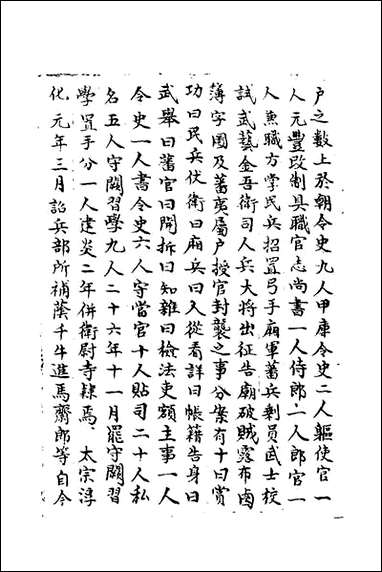 户之數上於朝令史九人甲庫令史二人驅使官一
人元豐改制具職官志尚書一人侍郎一人郎官一
人兼職方掌民兵招置弓手廂軍蕃兵剩員武士校
試武藝金吾衛司人兵大将出征告廟破賊露布鹵
簿字圖及蕃夷屬户授官封襲之事分案有十曰賞
功曰民兵伏衛曰廂兵曰入從看詳曰帳籍告身曰
武舉曰蕃官曰開拆曰知雜曰檢法吏額主事一人
令史一人書令史六人守當官十人貼司二十人私
名五人守闕習學九人二十六年十一月罷守闕習
學置手分一人建炎二年併衛尉寺隸焉 太宗淳
化元年三月詔兵部所補蔭千牛進馬齋郎等自今